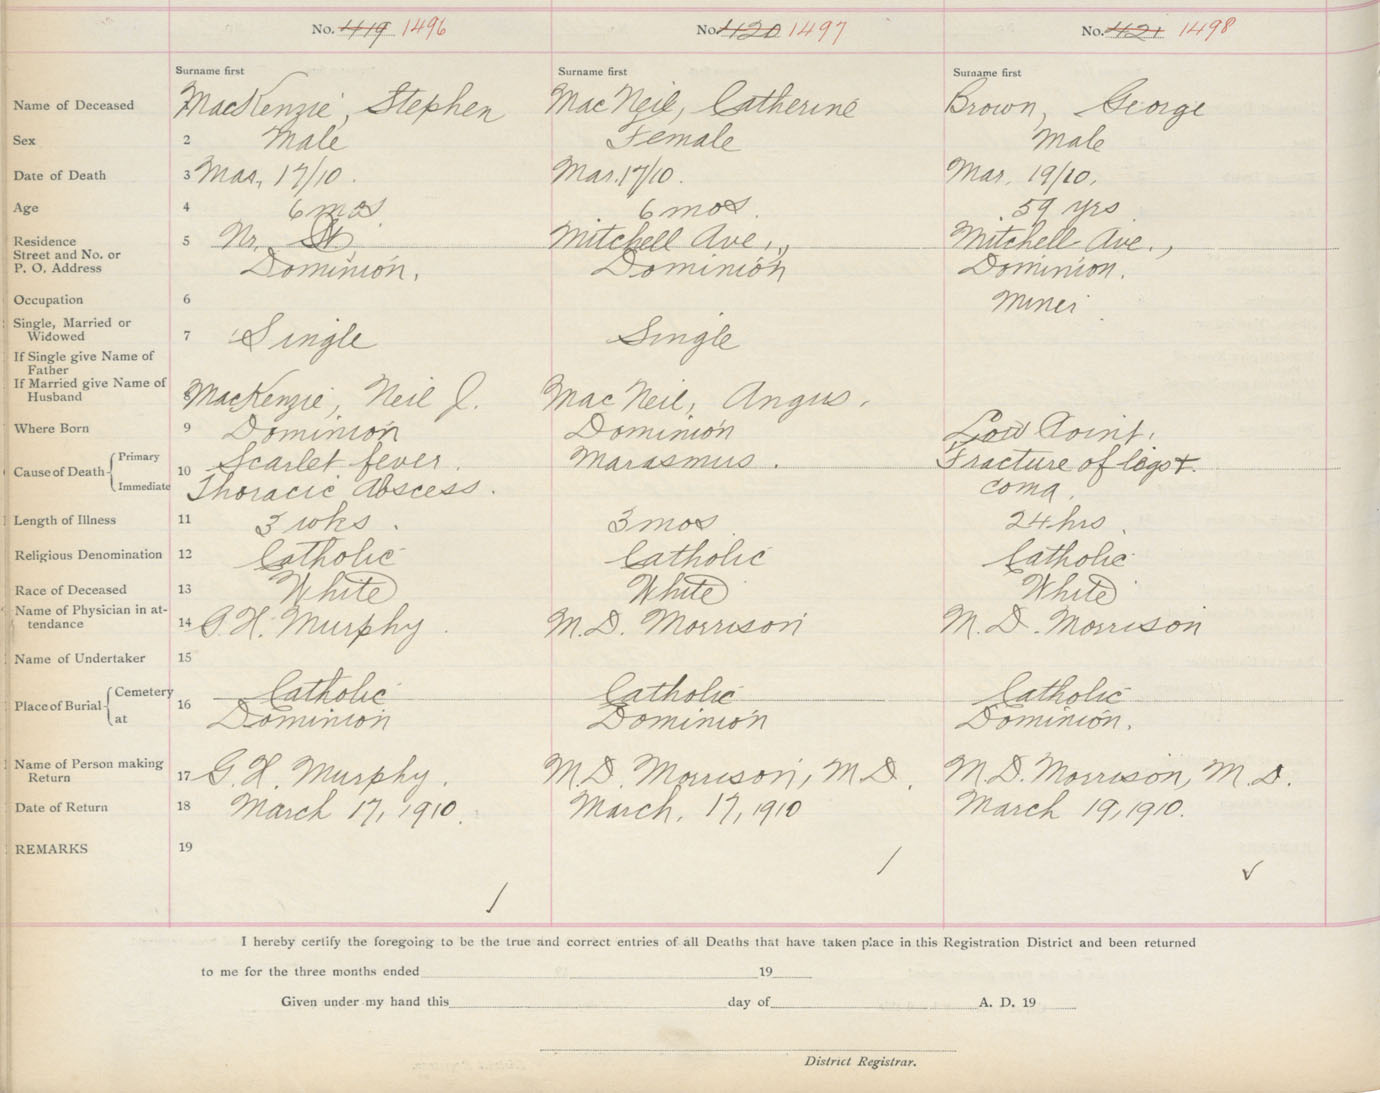 No. 419 1496 No. 420 1497 No. 421 1498
Surname first Surname first Surname first
Name of Deceased 1 MacKenzie, Stephen MacNeil, Catherine Brown, George
Sex 2 Male Female Male
Date of Death 3 Mar, 17/10. Mar. 17/10. Mar. 19/10.
Age 4 6 mos 6 mos. 59 yrs
Residence 5 Nr. St. Mitchell Ave., Mitchell Ave.,
Street and No. or
P. O. Address Dominion. Dominion Dominion.
Occupation 6 Miner
Single, Married or
Widowed 7 Single Single
If Single give Name of
Father
If Married give Name of
Husband 8 MacKenzie, Neil J. MacNeil, Angus.
Where Born 9 Dominion Dominion Low Point.
Cause of Death Primary 10 Scarlet fever. Marasmus. Fracture of legs +
Immediate Thoracic Abscess. coma.
Length of Illness 11 3 wks. 3 mos 24 hrs.
Religious Denomination 12 Catholic Catholic Catholic
Race of Deceased 13 White White White
Name of Physician in at-
tendance 14 G. H. Murphy. M. D. Morrison M. D. Morrison
Name of Undertaker 15
Place of Burial Cemetery 16 Catholic Catholic Catholic
at Dominion Dominion Dominion.
Name of Person making
Return 17 G. H. Murphy. M. D. Morrison, M D. M. D. Morrison, M. D.
Date of Return 18 March 17, 1910. March, 17, 1910 March 19, 1910.
REMARKS 19
I hereby certify the foregoing to be the true and correct entries of all Deaths that have taken place in this Registration District and been returned
to me for the three months ended 19
Given under my hand this day of A. D. 19
District Registrar.